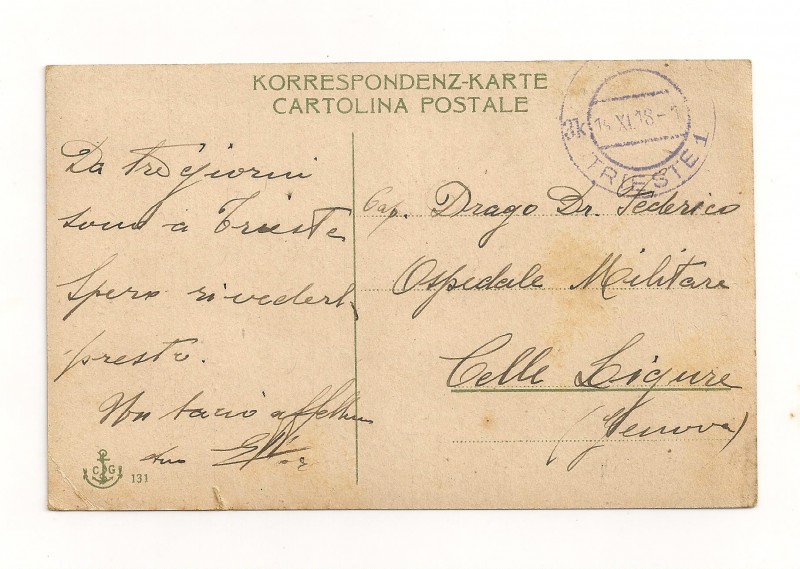 KORRESPONDENZ-KARTE
CARTOLINA POSTALE
3k XI.18-
TRIESTE 1
Da tre giorni
sono a Trieste
Spero rivederti
presto.
Un bacio
tuo
Cap. Drago Dr. Federico
Ospedale Militare
Celle Ligure
(Genova)
C G
131